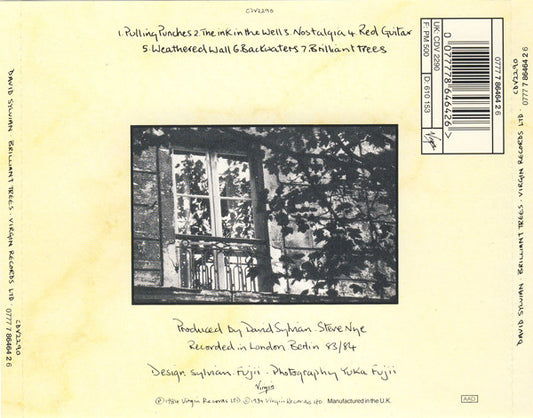 CDV2290
1. Pulling Punches 2. The ink in the Well 3. Nostalgia 4. Red Guitar
5. Weathered Wall 6. Backwaters 7. Brilliant Trees
UK: CDV 2290
F: PM 500
D 610 153
Virgin
0777 7 86464 2 6
D 077778646426>
Produced by David Sylvian Steve Nye
Recorded in London Berlin 83/84
Design Sylvian. Fujii · Photography Yuka Fujii
Virgin
Ⓟ 1984 Virgin Records LTD © 1984 Virgin Records Ltd Manufactured in the U.K.
AAD
DAVID SYLVIAN BRILLIANT TREES · VIRGIN RECORDS LTD · CDV2290 0777 7 86464 2 6
DAVID SYLVIAN BRILLIANT TREES · VIRGIN RECORDS LTD · CDV2290 0777 7 86464 2 6